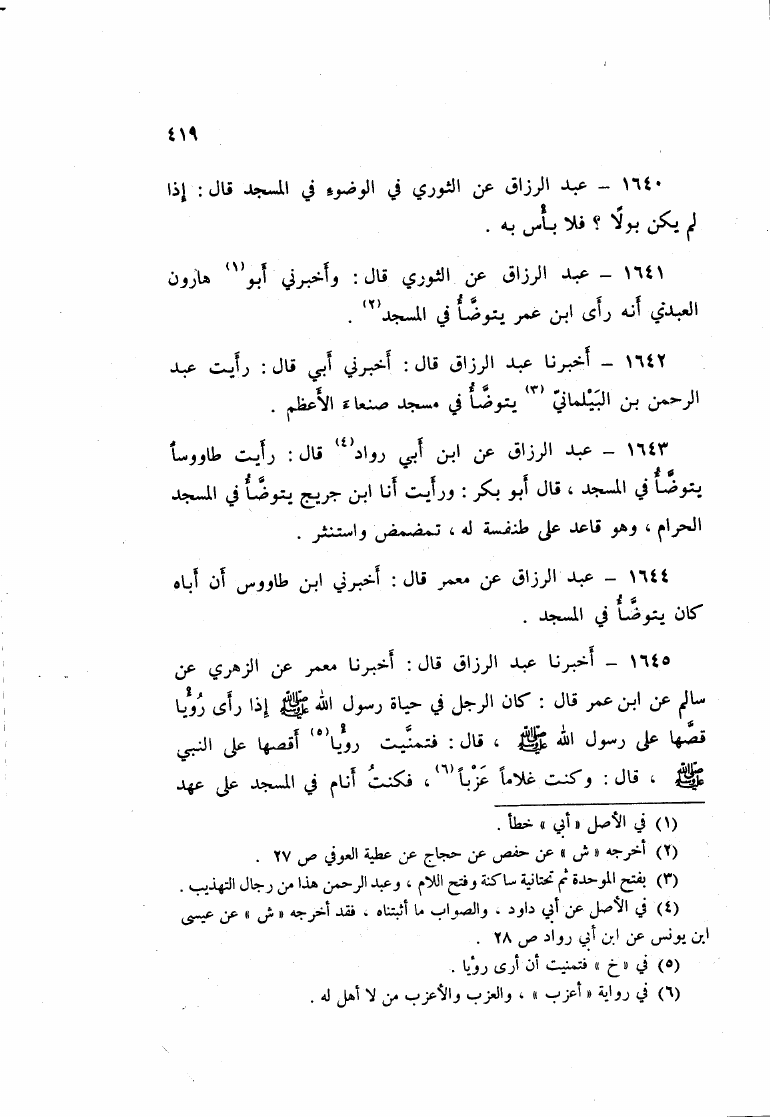 ٤١٩
١٦٤٠ – عبد الرزاق عن الثوري في الوضوء في المسجد قال : إذا
لم يكن بولًا ؟ فلا بأْس به .
١٦٤١ – عبد الرزاق عن الثوري قال : وأَخبرني أَبو(١) هارون
العبدي أنه رأى ابن عمر يتوضَّأُ في المسجد(٢) .
١٦٤٢ – أَخبرنا عبد الرزاق قال : أَخبرني أَبي قال : رأَيت عبد
الرحمن بن البَيْلمانيّ (٣) يتوضَّأُ في مسجد صنعاءَ الأَعظم .
١٦٤٣ – عبد الرزاق عن ابن أَبي رواد(٤) قال : رأَيت طاووساً
يتوضَّأُ في المسجد ، قال أَبو بكر : ورأَيت أَنا ابن جريج يتوضَّأُ في المسجد
الحرام ، وهو قاعد على طنفسة له ، تمضمض واستنثر .
١٦٤٤ – عبد الرزاق عن معمر قال : أَخبرني ابن طاووس أَن أَباه
كان يتوضَّأُ في المسجد .
١٦٤٥ – أَخبرنا عبد الرزاق قال : أَخبرنا معمر عن الزهري عن
سالم عن ابن عمر قال : كان الرجل في حياة رسول الله ﷺ إذا رأَى رُؤْيا
قصَّها على رسول الله ﷺ ، قال : فتمنَّيت رؤْيا(٥) أَقصها على النبي
ﷺ ، قال : وكنت غلاماً عَزْباً(٦) ، فكنتُ أَنام في المسجد على عهد
(١) في الأصل « أبي » خطأ .
(٢) أخرجه « ش » عن حفص عن حجاج عن عطية العوفي ص ٢٧ .
(٣) بفتح الموحدة ثم تحتانية ساكنة وفتح اللام ، وعبد الرحمن هذا من رجال التهذيب .
(٤) في الأصل عن أبي داود ، والصواب ما أثبتناه ، فقد أخرجه « ش » عن عيسى
ابن يونس عن ابن أبي رواد ص ٢٨ .
(٥) في « خ » فتمنيت أن أرى رؤيا .
(٦) في رواية « أعزب » ، والعزب والأعزب من لا أهل له .